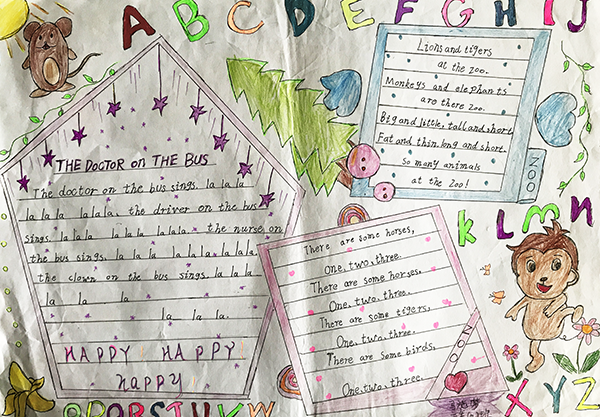 A B C D E F G H I J
Lions and tigers
at the zoo.
Monkeys and elephants
are there zoo.
Big and little, tall and short,
Fat and thin, long and short.
so many animals
at the zoo!
ZOO
THE DOCTOR on THE BUS
The doctor on the bus sings, la la la
la la la la la la. the driver on the bus
sings, la la la la la la la la. the nurse on
the bus sings, la la la la la la la la la.
the clown on the bus sings, la la la
la la la
la la la.
HAPPY! HAPPY!
HAPPY
There are some horses,
One, two, three.
There are some horses,
One, two, three.
There are some tigers,
One, two, three.
There are some birds,
One, two, three.
ZOO
K L M N
O P Q R S T U V W X Y Z